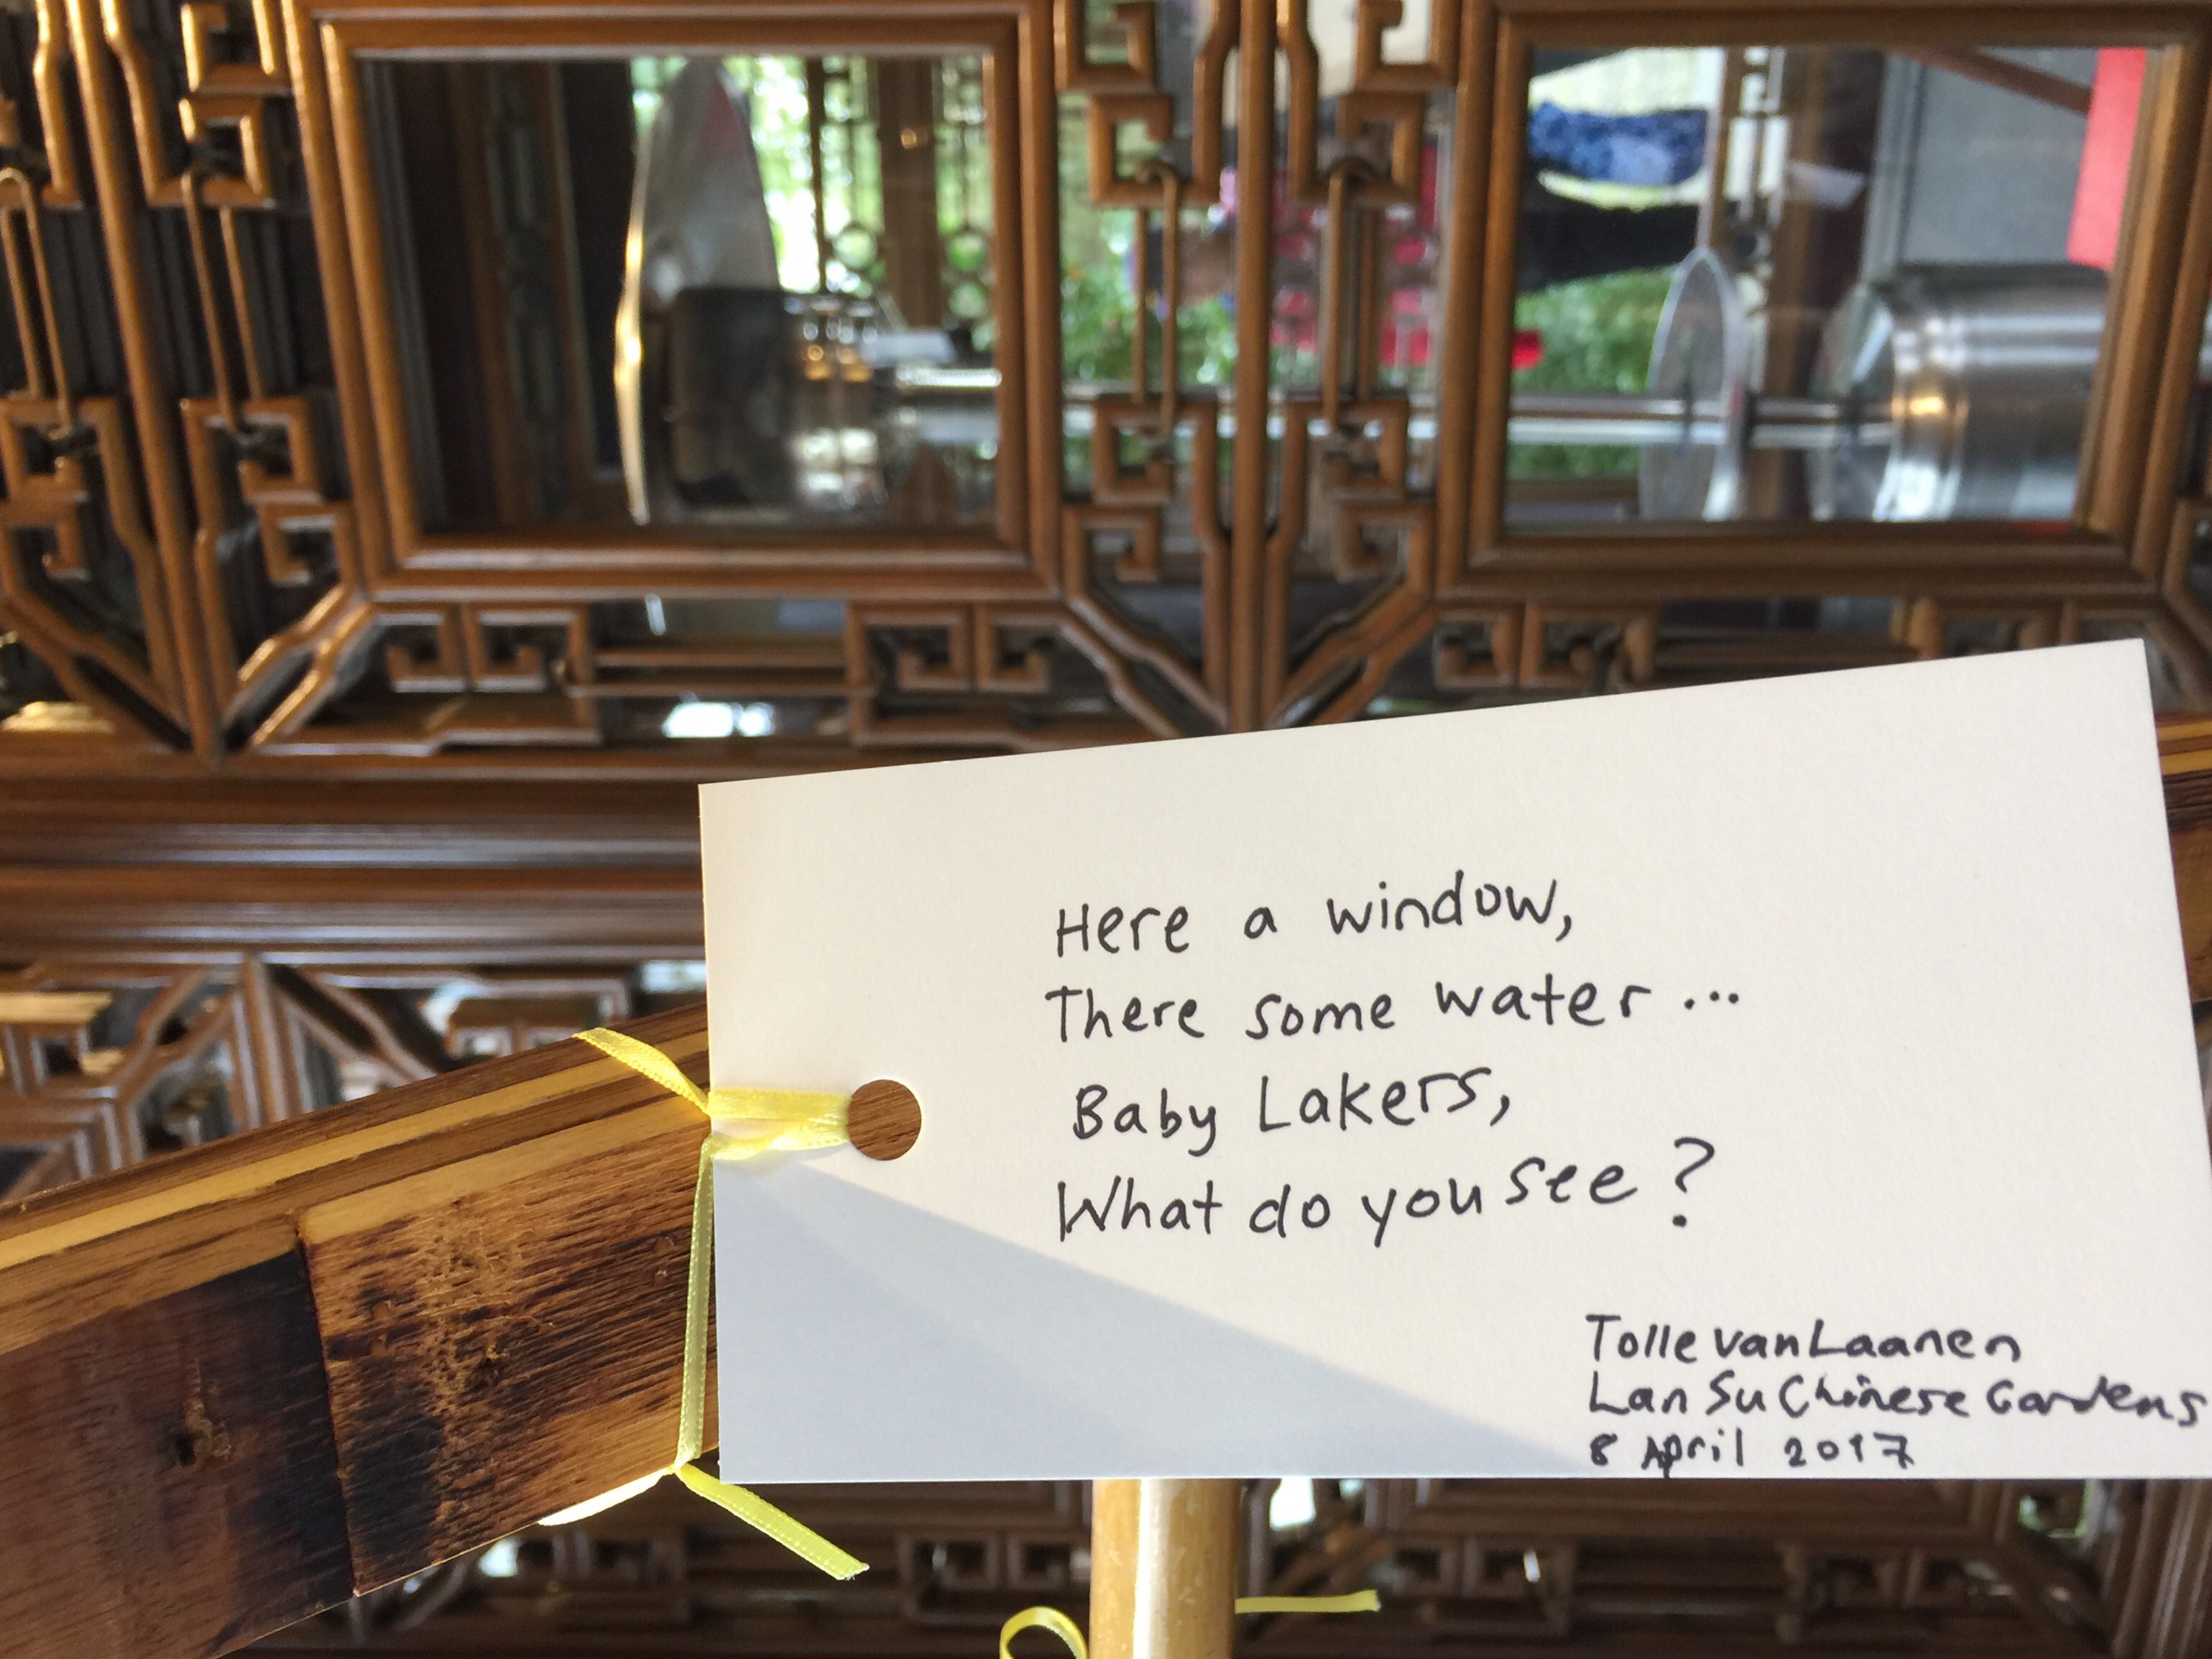 Here a window,
There some water...
Baby Lakers,
What do you see?
Tolle van Laanen
Lan Su Chinese Gardens
8 April 2017